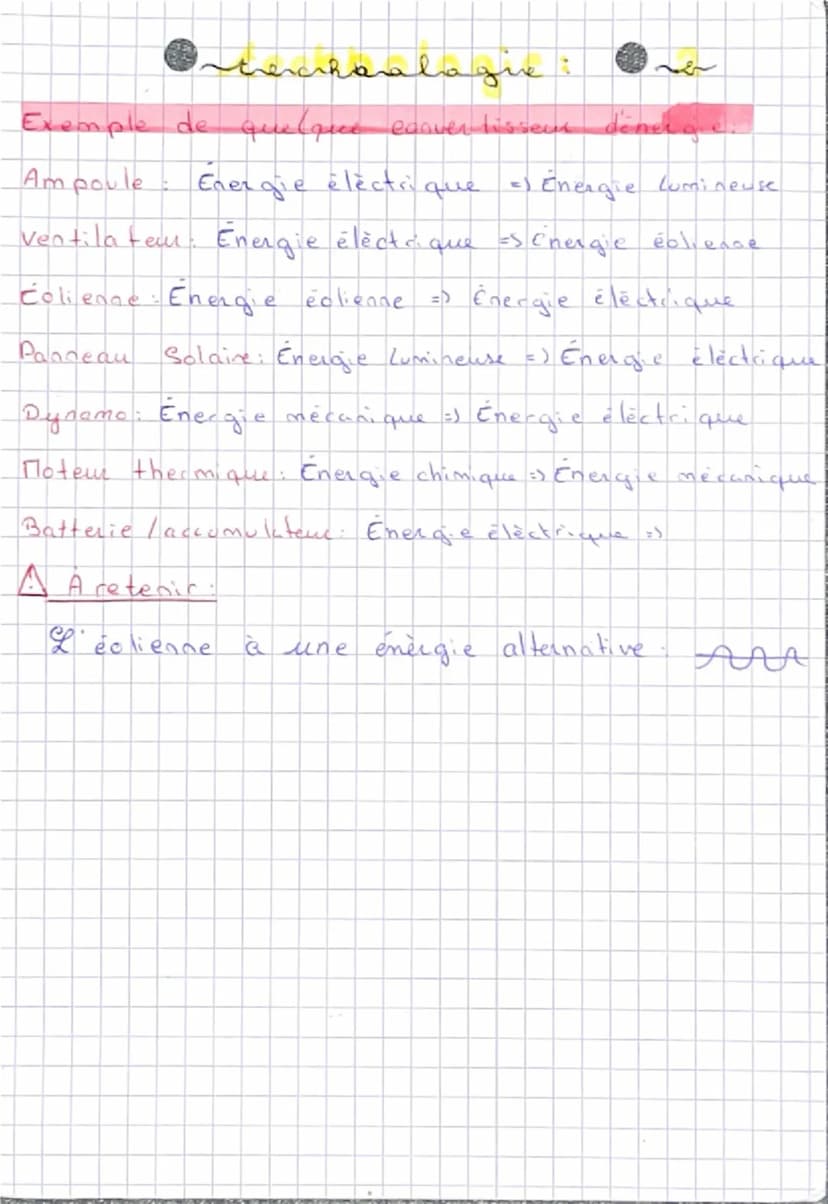 technologie : 2
Exemple de quelque convertisseur d'énergie.
Ampoule : Énergie élèctrique => Énergie lumineuse
Ventilateur : Énergie élèctrique => Énergie éolienne
Éolienne : Énergie éolienne => Énergie élèctrique
Panneau Solaire : Énergie lumineuse => Énergie élèctrique
Dynamo : Énergie mécanique => Énergie élèctrique
Moteur thermique : Énergie chimique => Énergie mécanique
Batterie / accumulateur : Énergie élèctrique =>
⚠ À retenir :
L'éolienne à une énèrgie alternative :